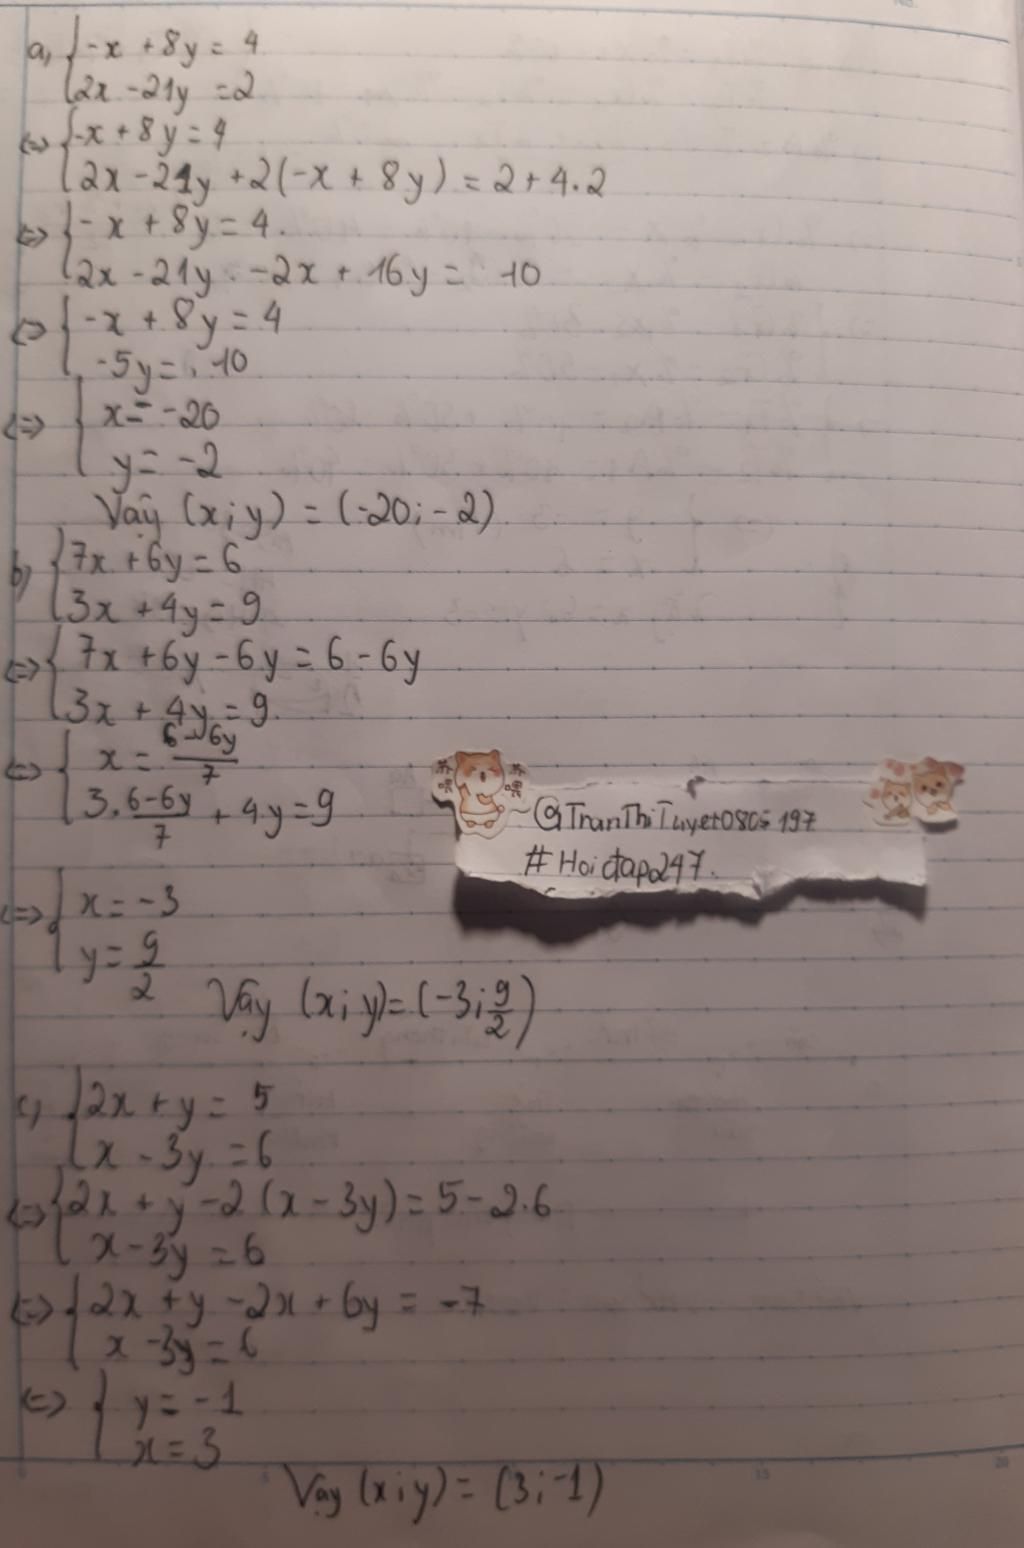 a, { -x + 8y = 4
2x - 21y = 2
<=> { -x + 8y = 4
2x - 21y + 2(-x + 8y) = 2 + 4.2
<=> { -x + 8y = 4.
2x - 21y - 2x + 16y = 10
<=> { -x + 8y = 4
-5y = 10
<=> { x = -20
y = -2
Vậy (x;y) = (-20;-2)
b, { 7x + 6y = 6
3x + 4y = 9
<=> { 7x + 6y - 6y = 6 - 6y
3x + 4y = 9
<=> { x = (6 - 6y)/7
3.(6 - 6y)/7 + 4y = 9
@TranThiTuyet0805197
#Hoidap247.
<=> { x = -3
y = 9/2
Vậy (x;y) = (-3;9/2)
c, { 2x + y = 5
x - 3y = 6
<=> { 2x + y - 2(x - 3y) = 5 - 2.6
x - 3y = 6
<=> { 2x + y - 2x + 6y = -7
x - 3y = 6
<=> { y = -1
x = 3
Vậy (x;y) = (3;-1)